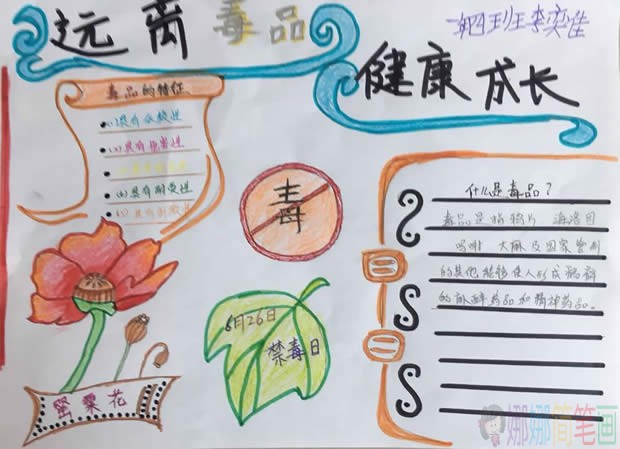 远离毒品
健康成长
一年四班李奕佳
毒品的特征
(1)具有依赖性
(2)具有危害性
(4)具有耐受性
毒
6月26日
禁毒日
罂粟花
什么是毒品?
毒品是指鸦片 海洛因
吗啡 大麻及国家管制
的其他能够使人形成瘾癖
的麻醉药品和精神药品。
娜娜简笔画